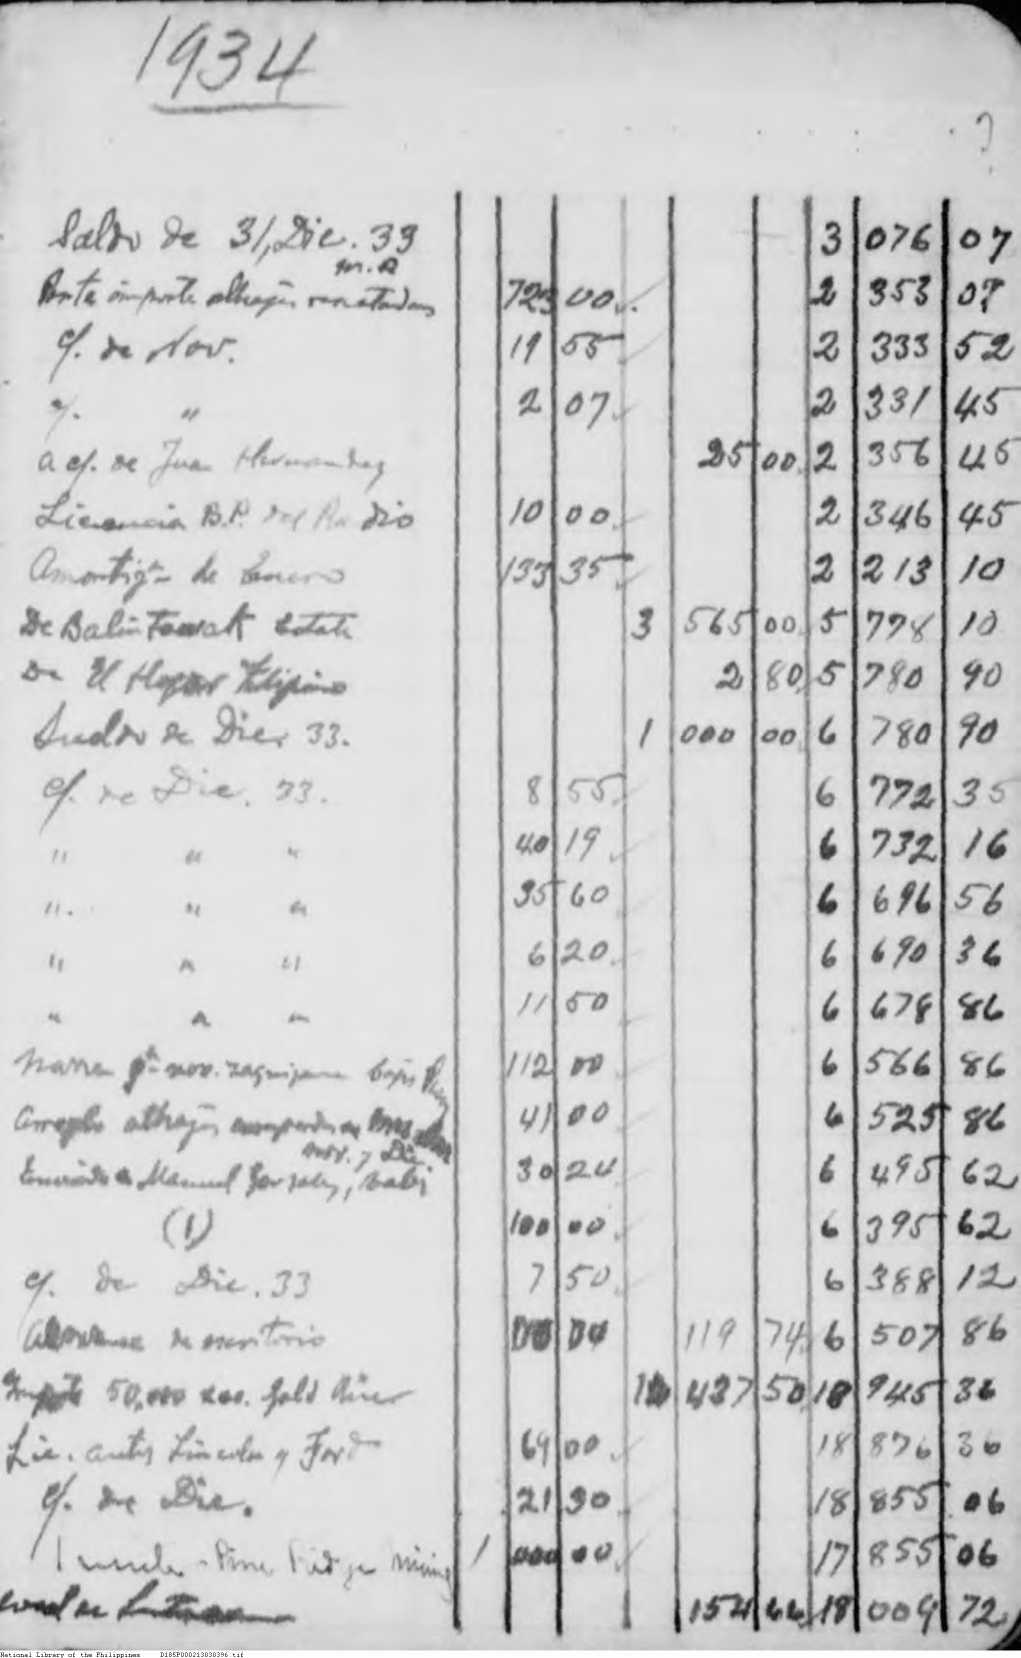 1934
?
Saldo de 31, Dic. 33 3 076 07
importe alhajas rematadas 723 00 2 353 07
c/. de Nov. 19 55 2 333 52
c/. " 2 07 2 331 45
a c/. de Juan Hernandez 25 00 2 356 45
Licencia B.P. del Radio 10 00 2 346 45
Amortizn de Enero 133 35 2 213 10
De Balintawak Estate 3 565 00 5 778 10
De El Hogar Filipino 2 80 5 780 90
Sueldo de Dic. 33. 1 000 00 6 780 90
c/. de Dic. 33. 8 55 6 772 35
" " " 40 19 6 732 16
" " " 35 60 6 696 56
" " " 6 20 6 690 36
" " " 11 50 6 678 86
nov. 112 00 6 566 86
Arreglo alhajas 41 00 6 525 86
nov. y Dic.
Enviado a Manuel Gonzalez, 30 24 6 495 62
(1) 100 00 6 395 62
c/. de Dic. 33 7 50 6 388 12
de escritorio 119 74 6 507 86
50,000 acc. Gold River 12 437 50 18 945 36
Lic. autos Lincoln y Ford 69 00 18 876 36
c/. de Dic. 21 30 18 855 06
Pine Ridge Mining 1 000 00 17 855 06
154 66 18 009 72
National Library of the Philippines D185P000213030396.tif